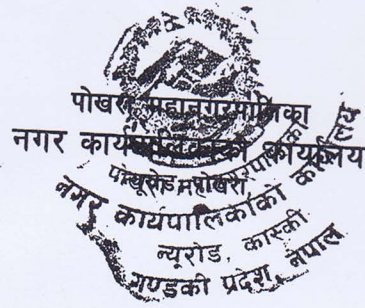 पोखरा महानगरपालिका
नगर कार्यपालिकाको कार्यालय
न्यूरोड, पोखरा
नगर कार्यपालिकाको
न्यूरोड, कास्की
गण्डकी प्रदेश, नेपाल